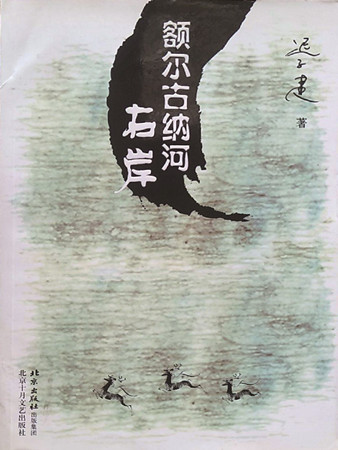 额尔古纳河
右岸
迟子建
著
北京出版社
出版集团
北京十月文艺出版社